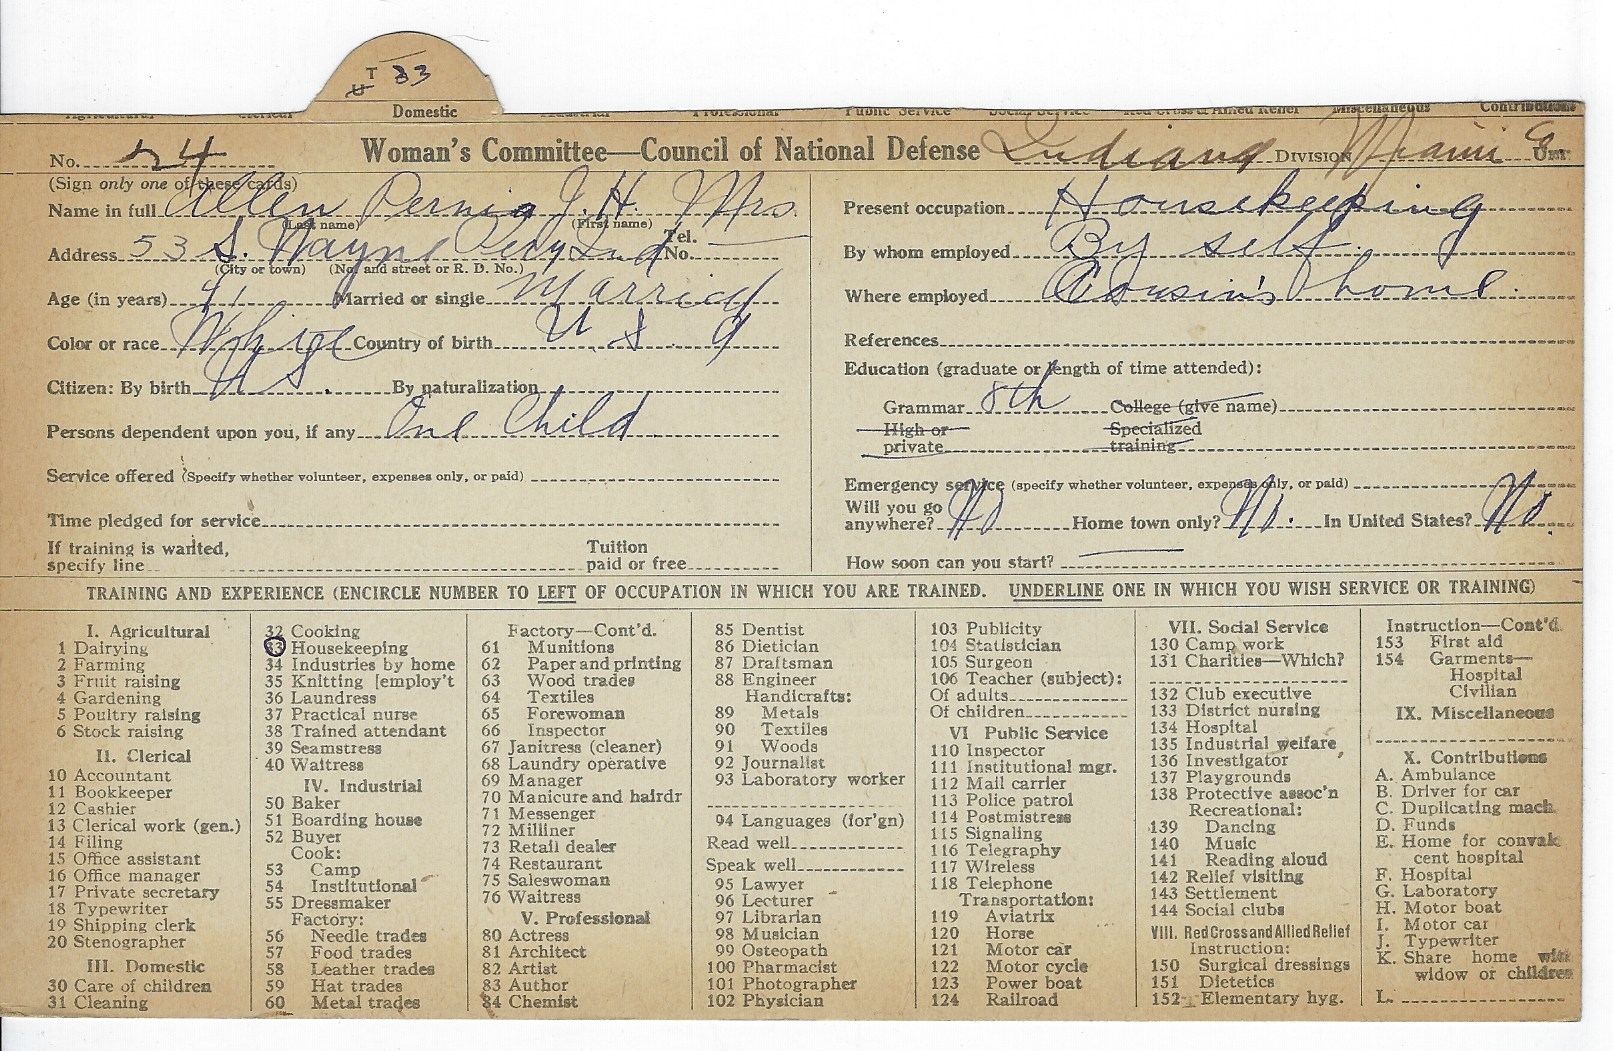 T 33
U
Agricultural Clerical Domestic Industrial Professional Public Service Social Service Red Cross & Allied Relief Miscellaneous Contributions
No. 24 Woman's Committee—Council of National Defense Indiana DIVISION Miami Co UNIT
(Sign only one of these cards)
Name in full Allen J. H. Mrs.
(Last name) (First name)
Address 53 S. Wayne Peru Ind Tel. No.
(City or town) (No. and street or R. D. No.)
Age (in years) 41 Married or single Married
Color or race White Country of birth U S a
Citizen: By birth U S. By naturalization
Persons dependent upon you, if any One Child
Service offered (Specify whether volunteer, expenses only, or paid)
Time pledged for service
If training is wanted, specify line Tuition paid or free
Present occupation Housekeeping
By whom employed By self.
Where employed Cousin's home.
References
Education (graduate or length of time attended):
Grammar 8th College (give name)
High or private Specialized training
Emergency service (specify whether volunteer, expenses only, or paid)
Will you go anywhere? No Home town only? No. In United States? No.
How soon can you start?
TRAINING AND EXPERIENCE (ENCIRCLE NUMBER TO LEFT OF OCCUPATION IN WHICH YOU ARE TRAINED. UNDERLINE ONE IN WHICH YOU WISH SERVICE OR TRAINING)
I. Agricultural
1 Dairying
2 Farming
3 Fruit raising
4 Gardening
5 Poultry raising
6 Stock raising
II. Clerical
10 Accountant
11 Bookkeeper
12 Cashier
13 Clerical work (gen.)
14 Filing
15 Office assistant
16 Office manager
17 Private secretary
18 Typewriter
19 Shipping clerk
20 Stenographer
III. Domestic
30 Care of children
31 Cleaning
32 Cooking
33 Housekeeping
34 Industries by home
35 Knitting [employ't
36 Laundress
37 Practical nurse
38 Trained attendant
39 Seamstress
40 Waitress
IV. Industrial
50 Baker
51 Boarding house
52 Buyer
Cook:
53 Camp
54 Institutional
55 Dressmaker
Factory:
56 Needle trades
57 Food trades
58 Leather trades
59 Hat trades
60 Metal trades
Factory—Cont'd.
61 Munitions
62 Paper and printing
63 Wood trades
64 Textiles
65 Forewoman
66 Inspector
67 Janitress (cleaner)
68 Laundry operative
69 Manager
70 Manicure and hairdr
71 Messenger
72 Milliner
73 Retail dealer
74 Restaurant
75 Saleswoman
76 Waitress
V. Professional
80 Actress
81 Architect
82 Artist
83 Author
84 Chemist
85 Dentist
86 Dietician
87 Draftsman
88 Engineer
Handicrafts:
89 Metals
90 Textiles
91 Woods
92 Journalist
93 Laboratory worker
94 Languages (for'gn)
Read well
Speak well
95 Lawyer
96 Lecturer
97 Librarian
98 Musician
99 Osteopath
100 Pharmacist
101 Photographer
102 Physician
103 Publicity
104 Statistician
105 Surgeon
106 Teacher (subject):
Of adults
Of children
VI Public Service
110 Inspector
111 Institutional mgr.
112 Mail carrier
113 Police patrol
114 Postmistress
115 Signaling
116 Telegraphy
117 Wireless
118 Telephone
Transportation:
119 Aviatrix
120 Horse
121 Motor car
122 Motor cycle
123 Power boat
124 Railroad
VII. Social Service
130 Camp work
131 Charities—Which?
132 Club executive
133 District nursing
134 Hospital
135 Industrial welfare
136 Investigator
137 Playgrounds
138 Protective assoc'n
Recreational:
139 Dancing
140 Music
141 Reading aloud
142 Relief visiting
143 Settlement
144 Social clubs
VIII. Red Cross and Allied Relief
Instruction:
150 Surgical dressings
151 Dietetics
152 Elementary hyg.
Instruction—Cont'd.
153 First aid
154 Garments—
Hospital
Civilian
IX. Miscellaneous
X. Contributions
A. Ambulance
B. Driver for car
C. Duplicating mach.
D. Funds
E. Home for convales
cent hospital
F. Hospital
G. Laboratory
H. Motor boat
I. Motor car
J. Typewriter
K. Share home with
widow or children
L.